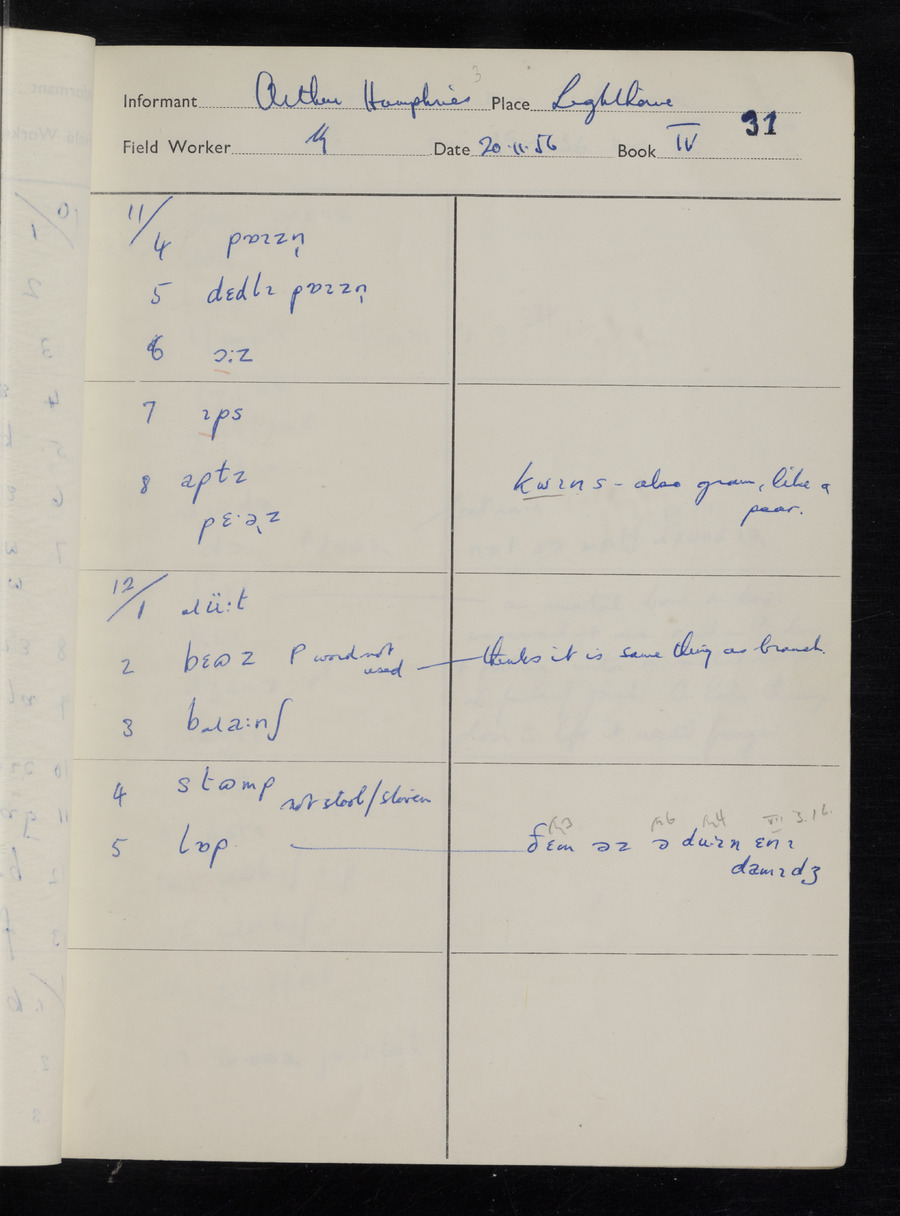 Informant Arthur Humphries 3 Place Lighthorne
Field Worker Date 20.11.56 Book IV 31
11/
4 pɒɪzn̩
5 dɛdlɪ pɒɪzn̩
6 ɔ:z
7 ɪps
8 aptz
kwɪns - also grown, like a
pear.
12/
1 ɹü:t
2 bɛωz P word not
used
thinks it is same thing as branch.
3 bɹa:nʃ
4 stωmp not stool/stoven
5 lɒp ðɛm əz ə duɪn ɛnɪ
damɪdʒ
VII 3.16.